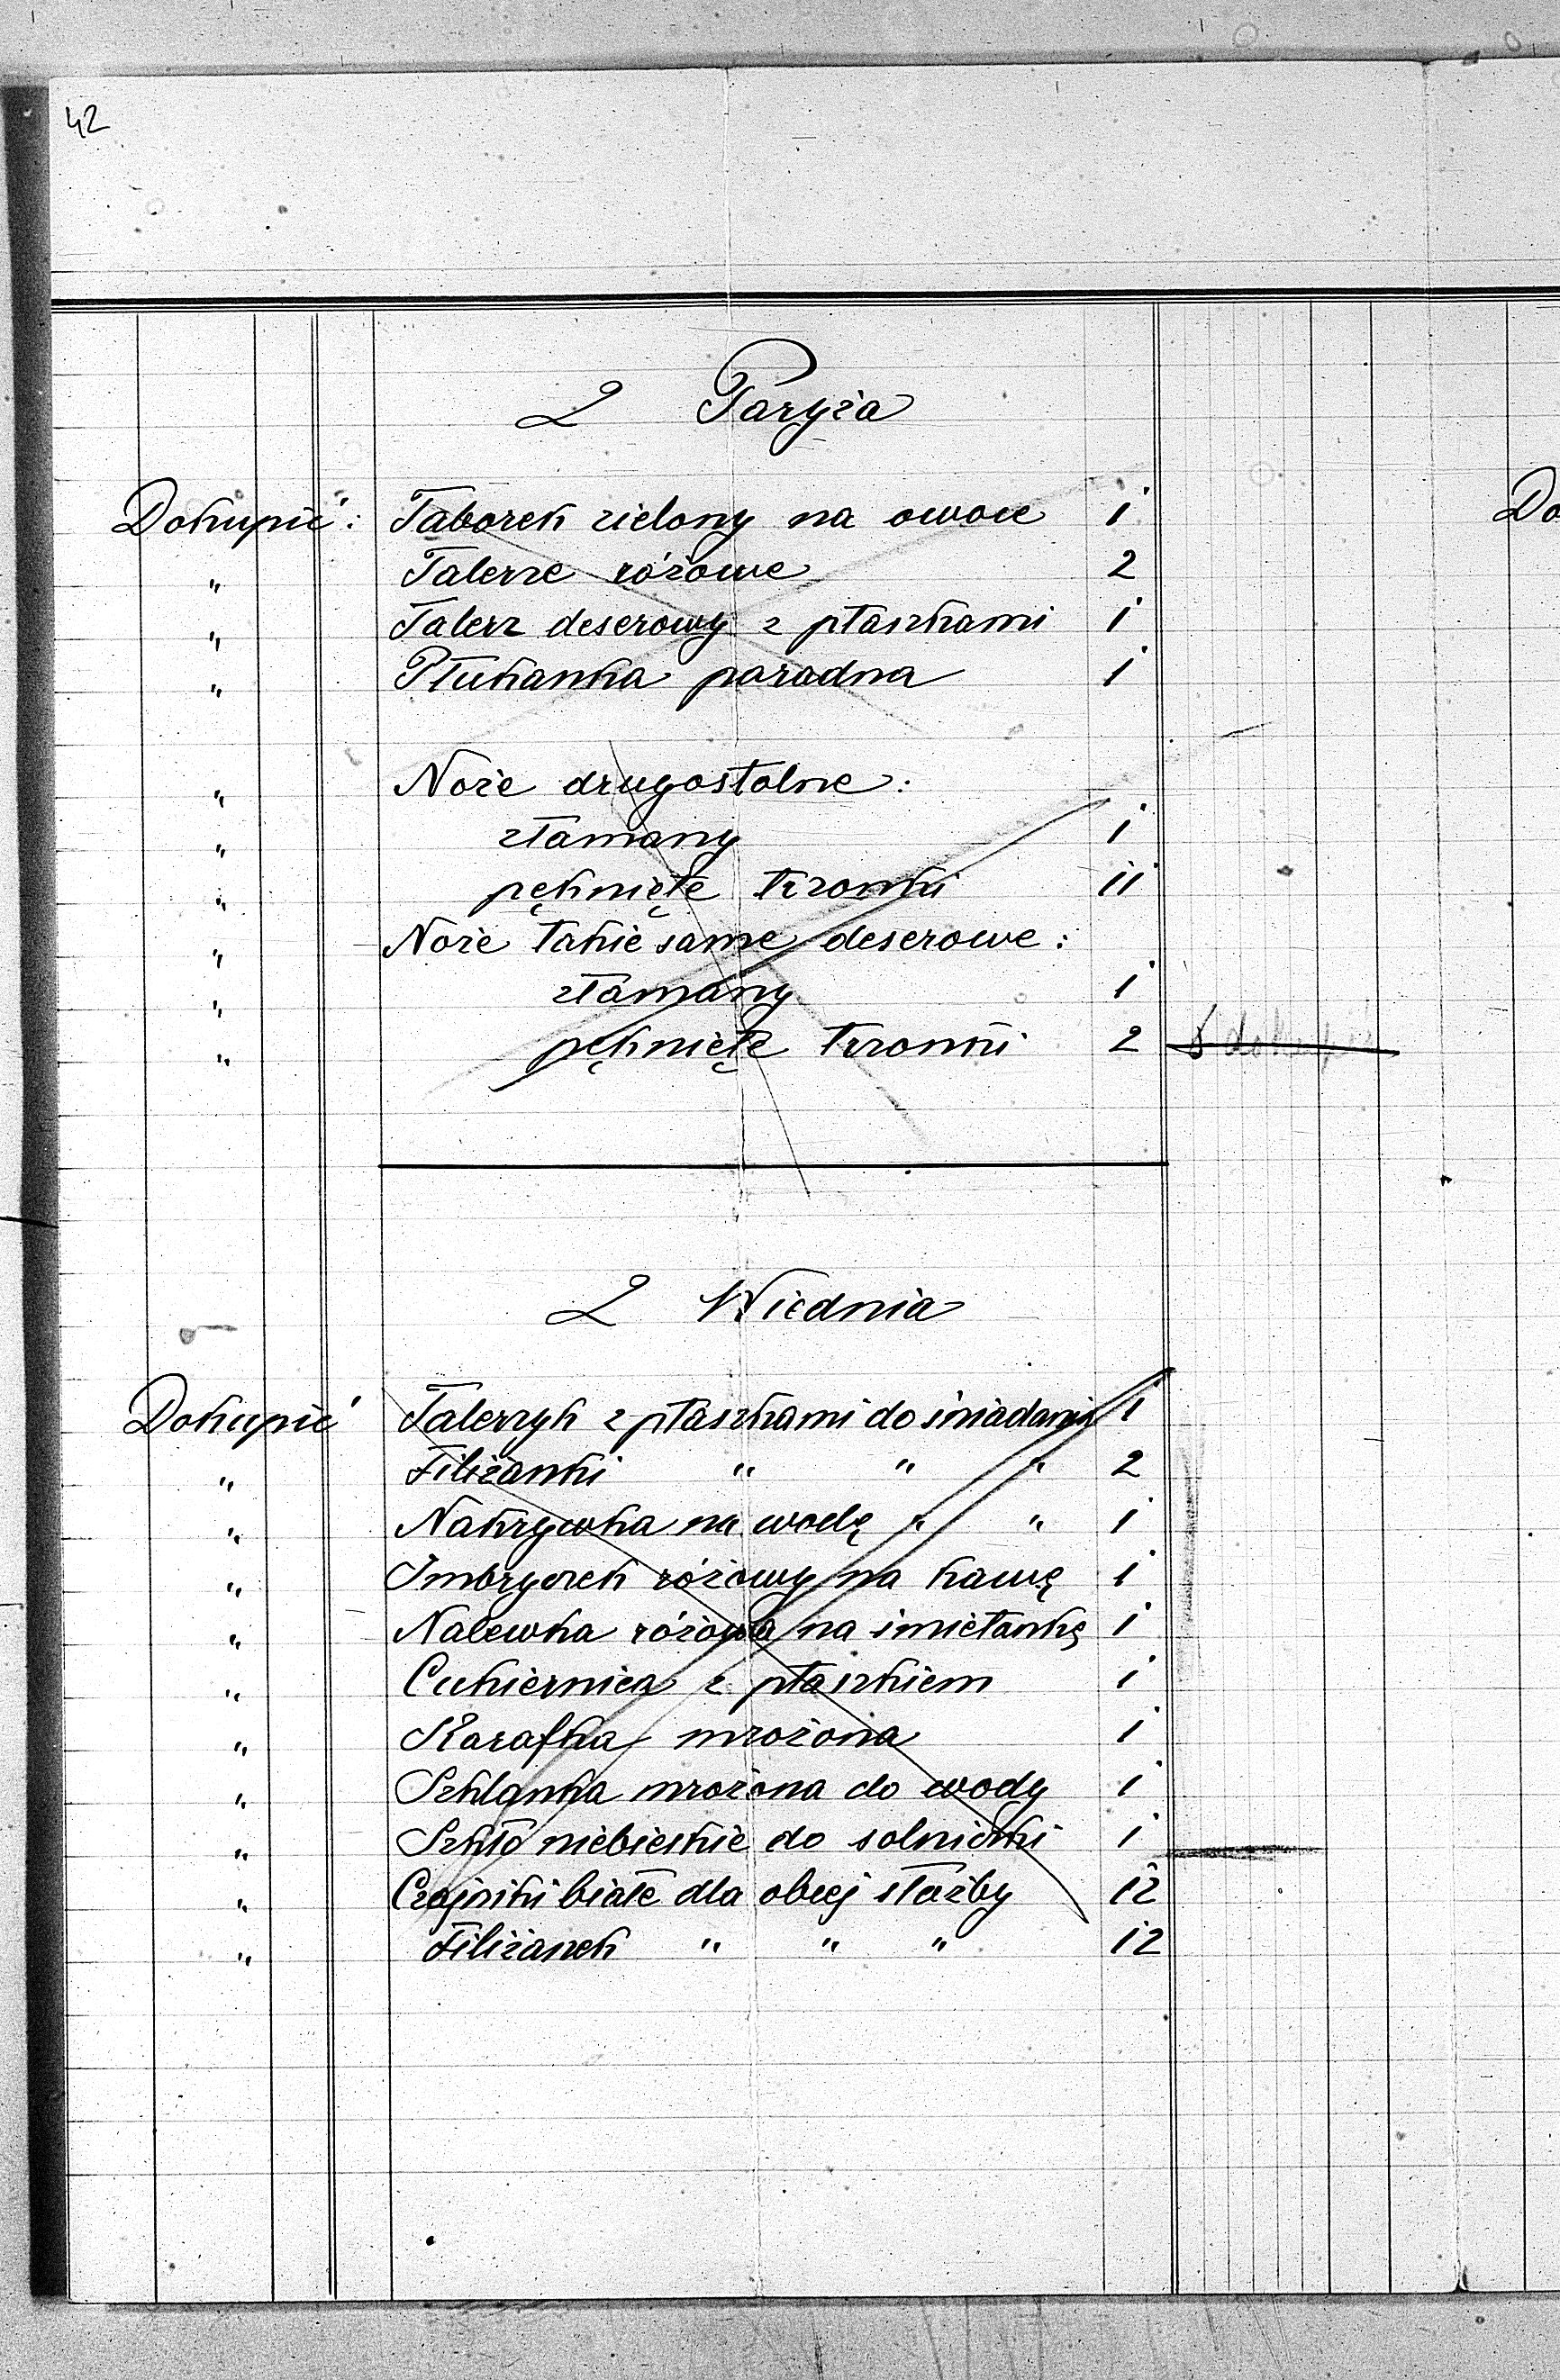 42
Z Paryża
Dokupić: Taborek zielony na owoce 1
" Talerze różowe 2
" Talerz deserowy z ptaszkami 1
" Płukanka paradna 1
" Noże drugostolne:
" złamany 1
" pęknięte trzonki 11
" Noże takie same deserowe:
" złamany 1
" pęknięte trzonki 2
Z Wiednia
Dokupić Talerzyk z ptaszkami do śniadania 1
" Filiżanki " " " 2
" Nakrywka na wodę " " 1
" Imbryczek różowy na kawę 1
" Nalewka różowa na śmietankę 1
" Cukiernica z ptaszkiem 1
" Karafka mrożona 1
" Szklanka mrożona do wody 1
" Szkło niebieskie do solniczki 1
" Czajniki białe dla obcej służby 12
" Filiżanek " " " 12
Do